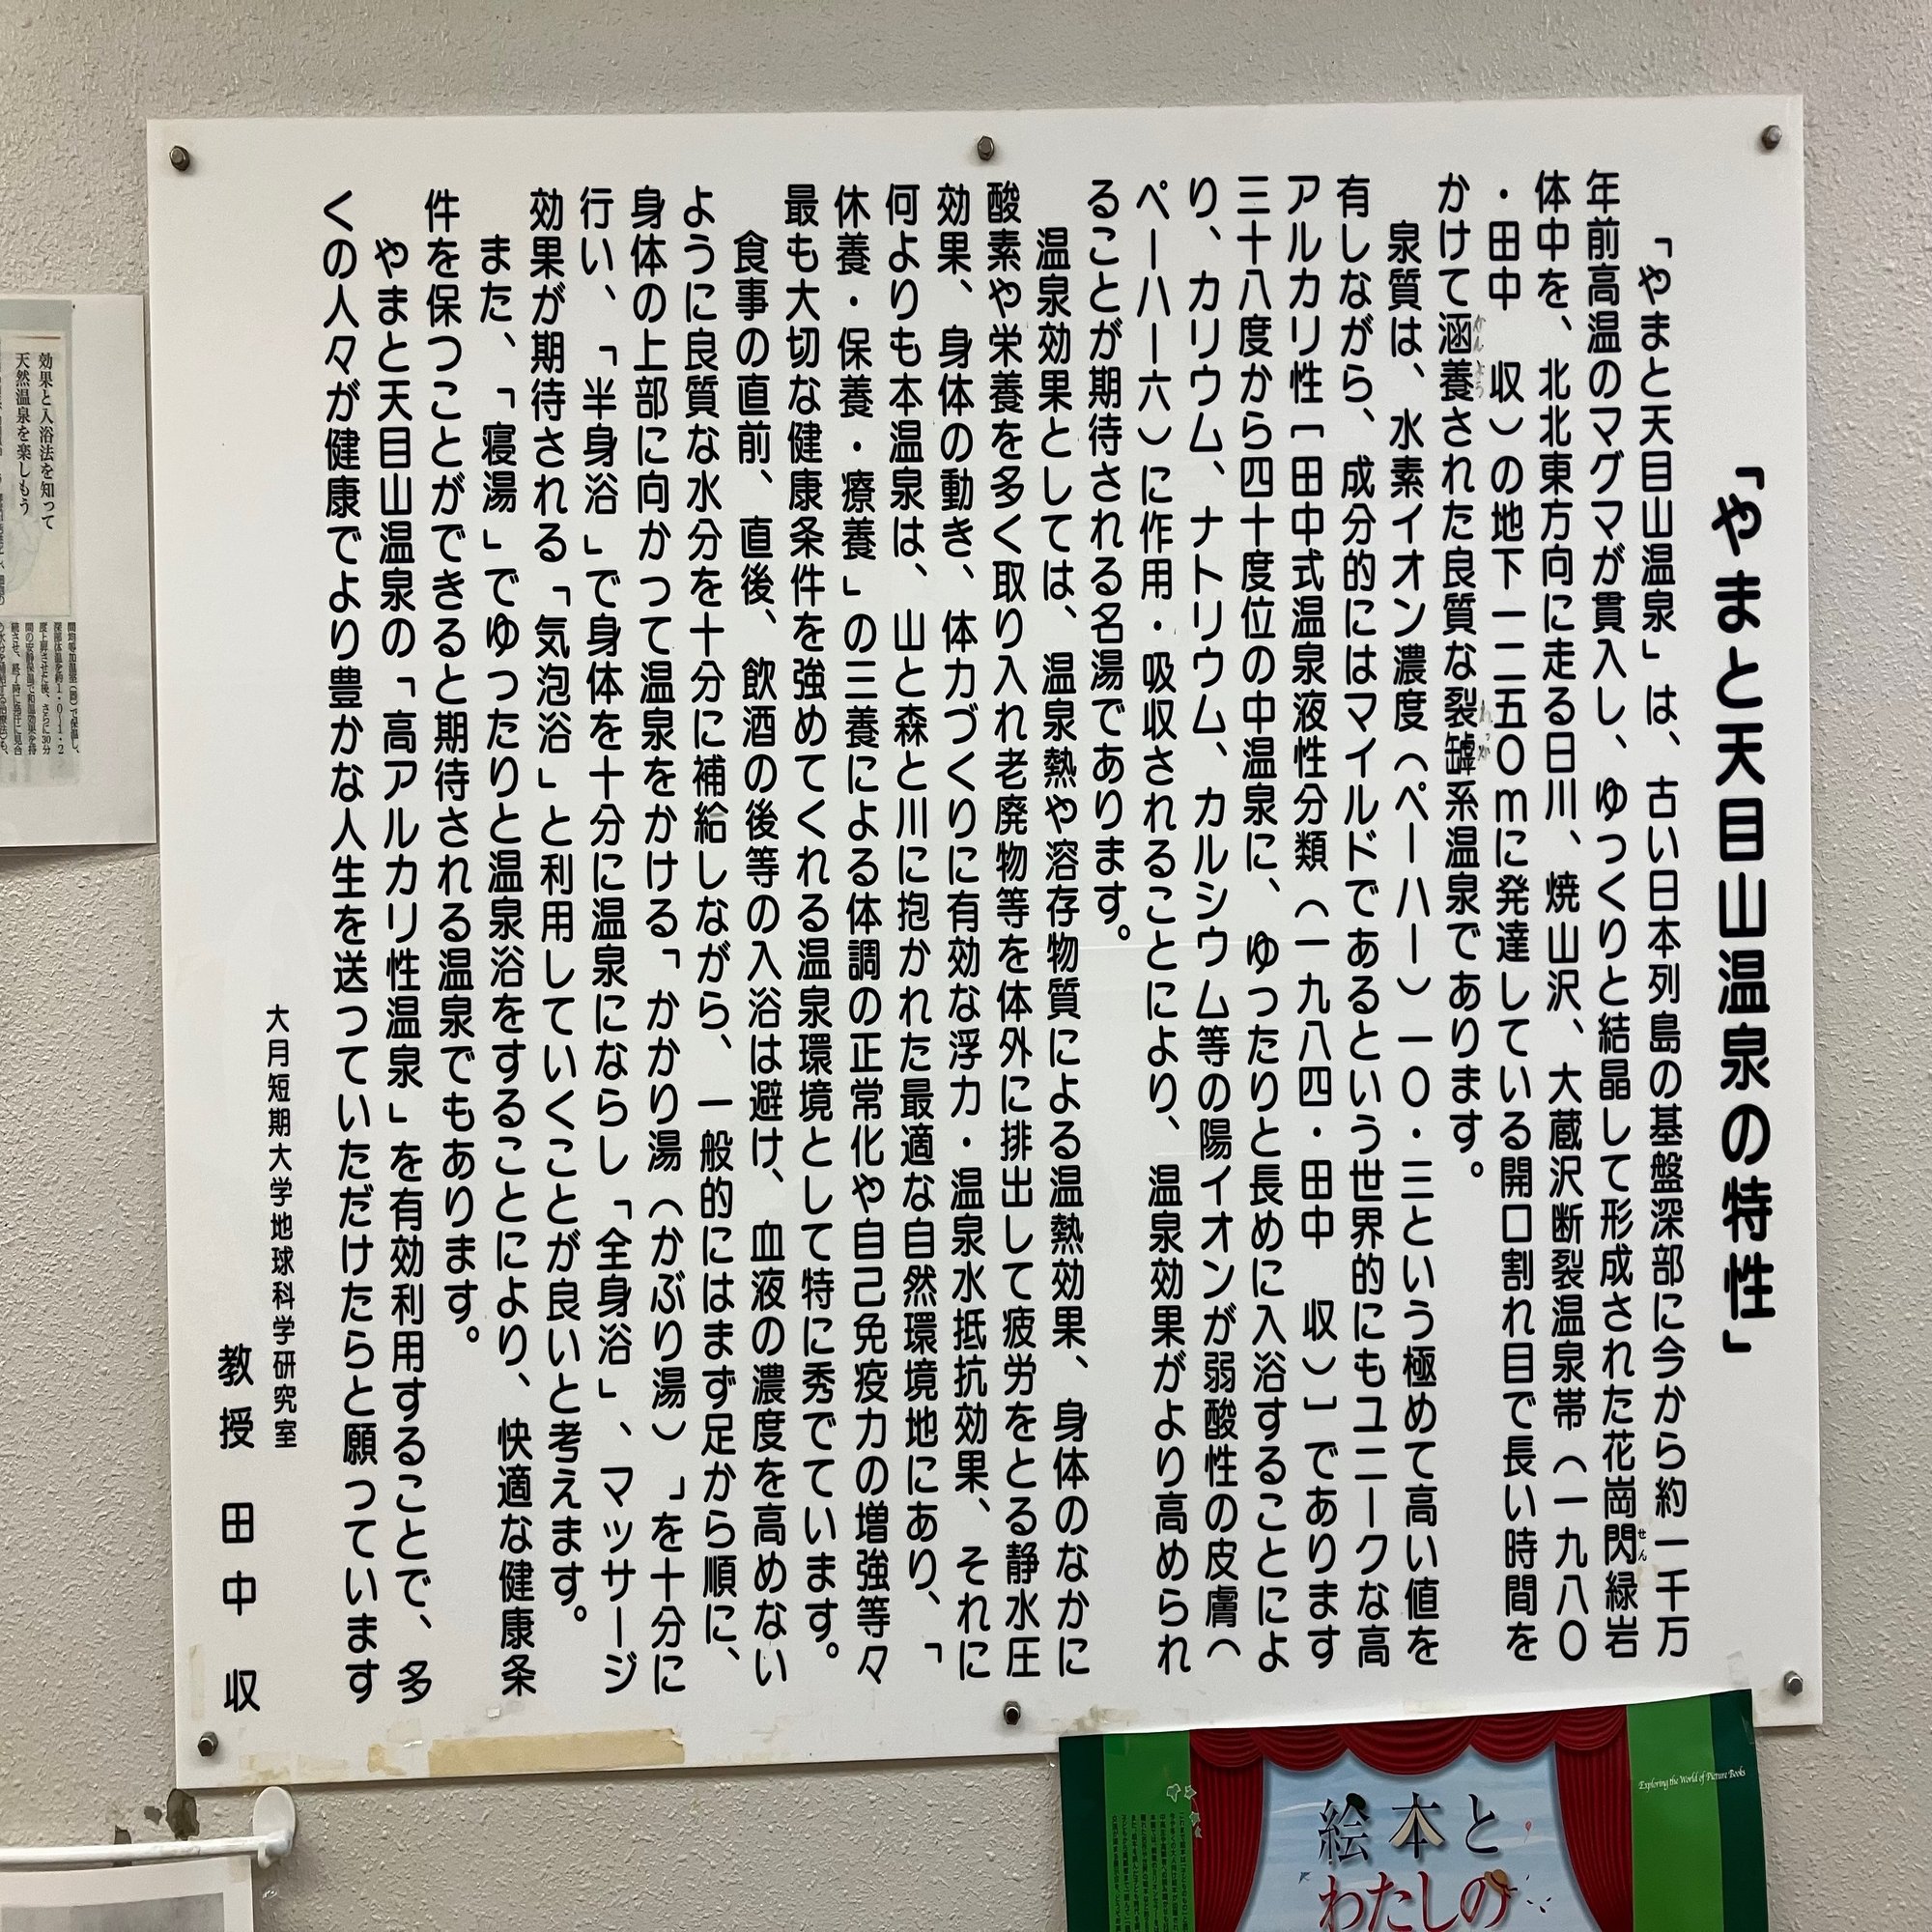 「やまと天目山温泉の特性」
「やまと天目山温泉」は、古い日本列島の基盤深部に今から約一千万
年前高温のマグマが貫入し、ゆっくりと結晶して形成された花崗閃緑岩
せん
体中を、北北東方向に走る日川、焼山沢、大蔵沢断裂温泉帯（一九八〇
・田中　収）の地下一二五〇mに発達している開口割れ目で長い時間を
かけて涵養された良質な裂罅系温泉であります。
かんよう
れっか
泉質は、水素イオン濃度（ペーハー）一〇・三という極めて高い値を
有しながら、成分的にはマイルドであるという世界的にもユニークな高
アルカリ性［田中式温泉液性分類（一九八四・田中　収）］であります
三十八度から四十度位の中温泉に、ゆったりと長めに入浴することによ
り、カリウム、ナトリウム、カルシウム等の陽イオンが弱酸性の皮膚（
ペーハー六）に作用・吸収されることにより、温泉効果がより高められ
ることが期待される名湯であります。
温泉効果としては、温泉熱や溶存物質による温熱効果、身体のなかに
酸素や栄養を多く取り入れ老廃物等を体外に排出して疲労をとる静水圧
効果、身体の動き、体力づくりに有効な浮力・温泉水抵抗効果、それに
何よりも本温泉は、山と森と川に抱かれた最適な自然環境地にあり、「
休養・保養・療養」の三養による体調の正常化や自己免疫力の増強等々
最も大切な健康条件を強めてくれる温泉環境として特に秀でています。
食事の直前、直後、飲酒の後等の入浴は避け、血液の濃度を高めない
ように良質な水分を十分に補給しながら、一般的にはまず足から順に、
身体の上部に向かって温泉をかける「かかり湯（かぶり湯）」を十分に
行い、「半身浴」で身体を十分に温泉にならし「全身浴」、マッサージ
効果が期待される「気泡浴」と利用していくことが良いと考えます。
また、「寝湯」でゆったりと温泉浴をすることにより、快適な健康条
件を保つことができると期待される温泉でもあります。
やまと天目山温泉の「高アルカリ性温泉」を有効利用することで、多
くの人々が健康でより豊かな人生を送っていただけたらと願っています
大月短期大学地球科学研究室
教授　田中　収
効果と入浴法を知って
天然温泉を楽しもう
Exploring the World of Picture Books
絵本と
わたしの